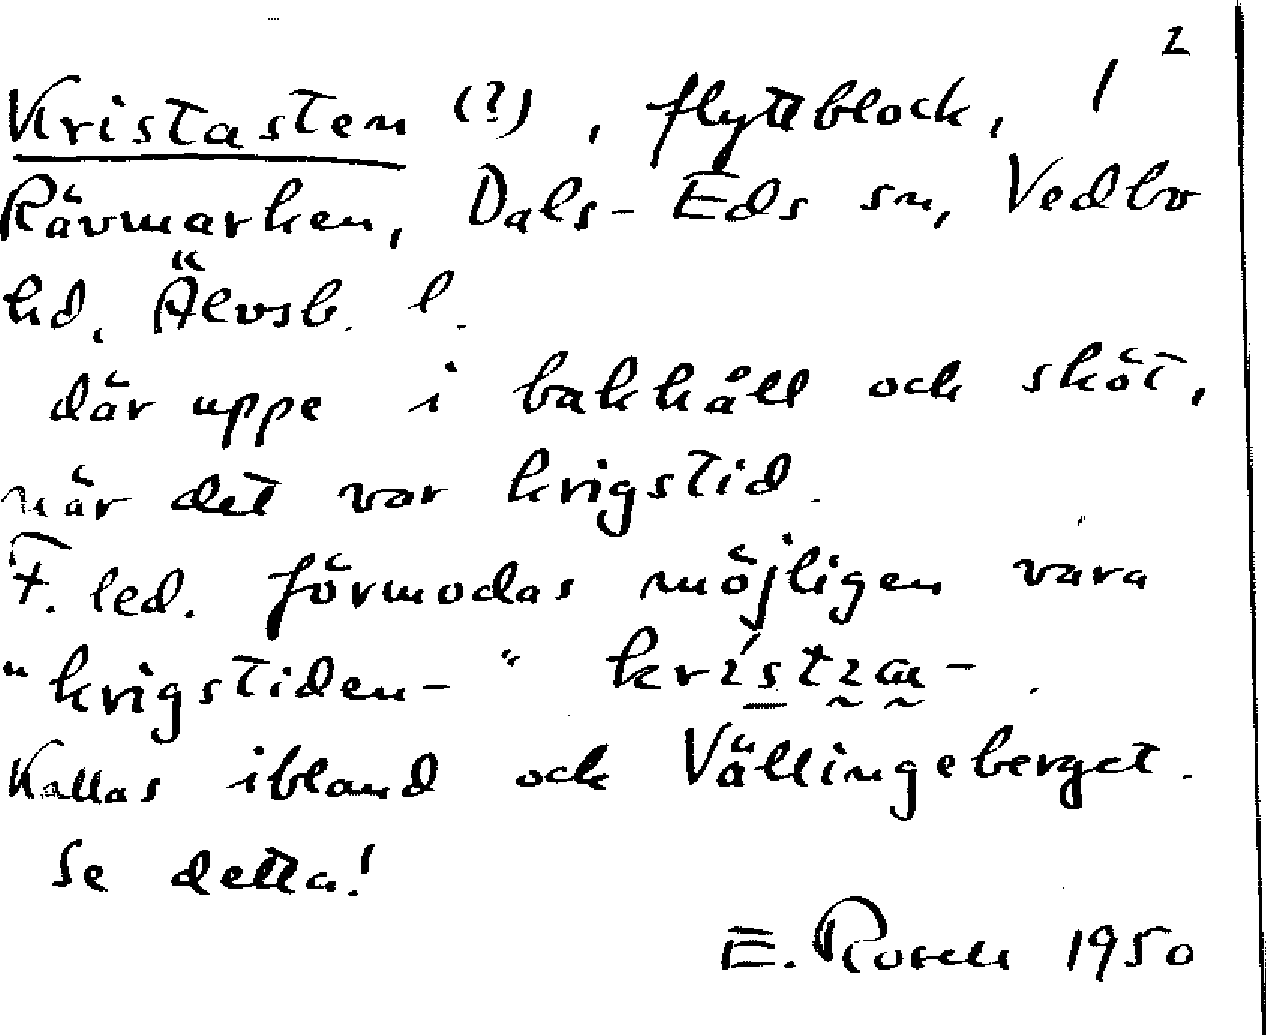 2
Kristasten (?), flyttblock, /
Rävmarken, Dals-Eds sn, Vedbo
hd, Älvsb. l.
där uppe i bakhåll och sköt,
när det var krigstid.
F. led. förmodas möjligen vara
"krigstiden-"
Kallas ibland och Vällingeberget.
Se detta!
E. Rosell 1950